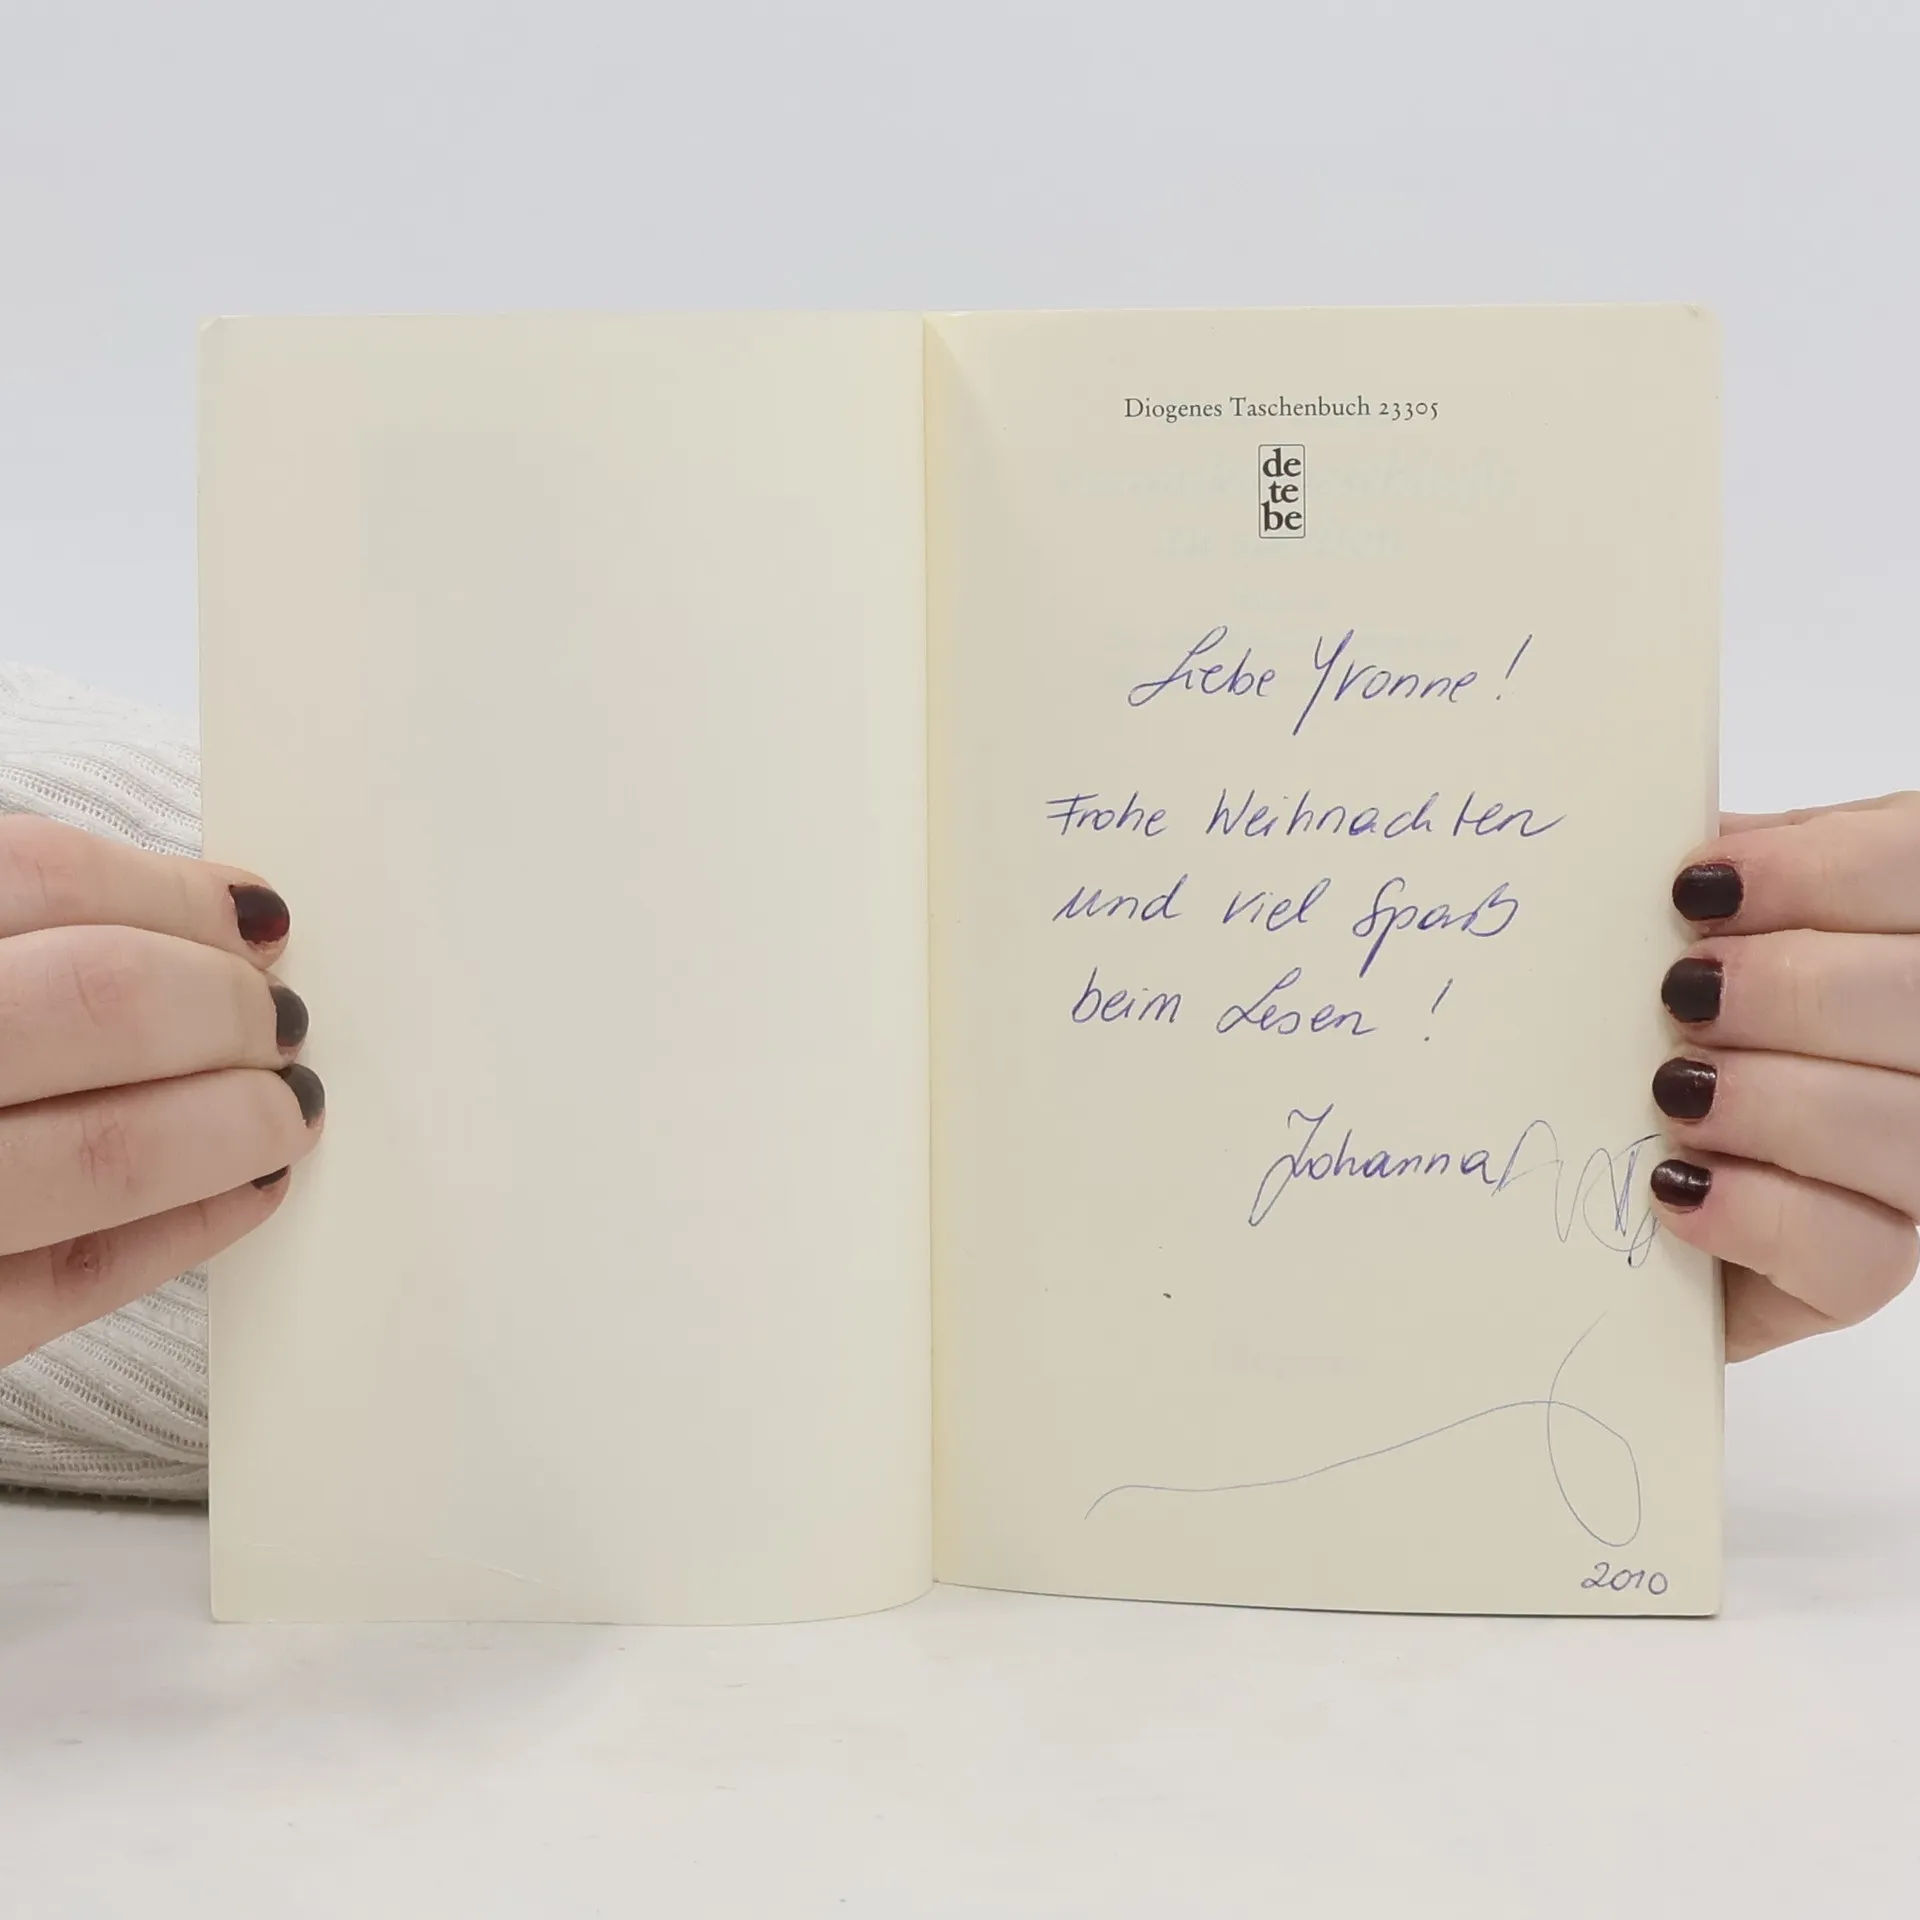 Diogenes Taschenbuch 23305
de
te
be
Liebe Yvonne!
Frohe Weihnachten
und viel Spaß
beim Lesen!
Johanna
2010